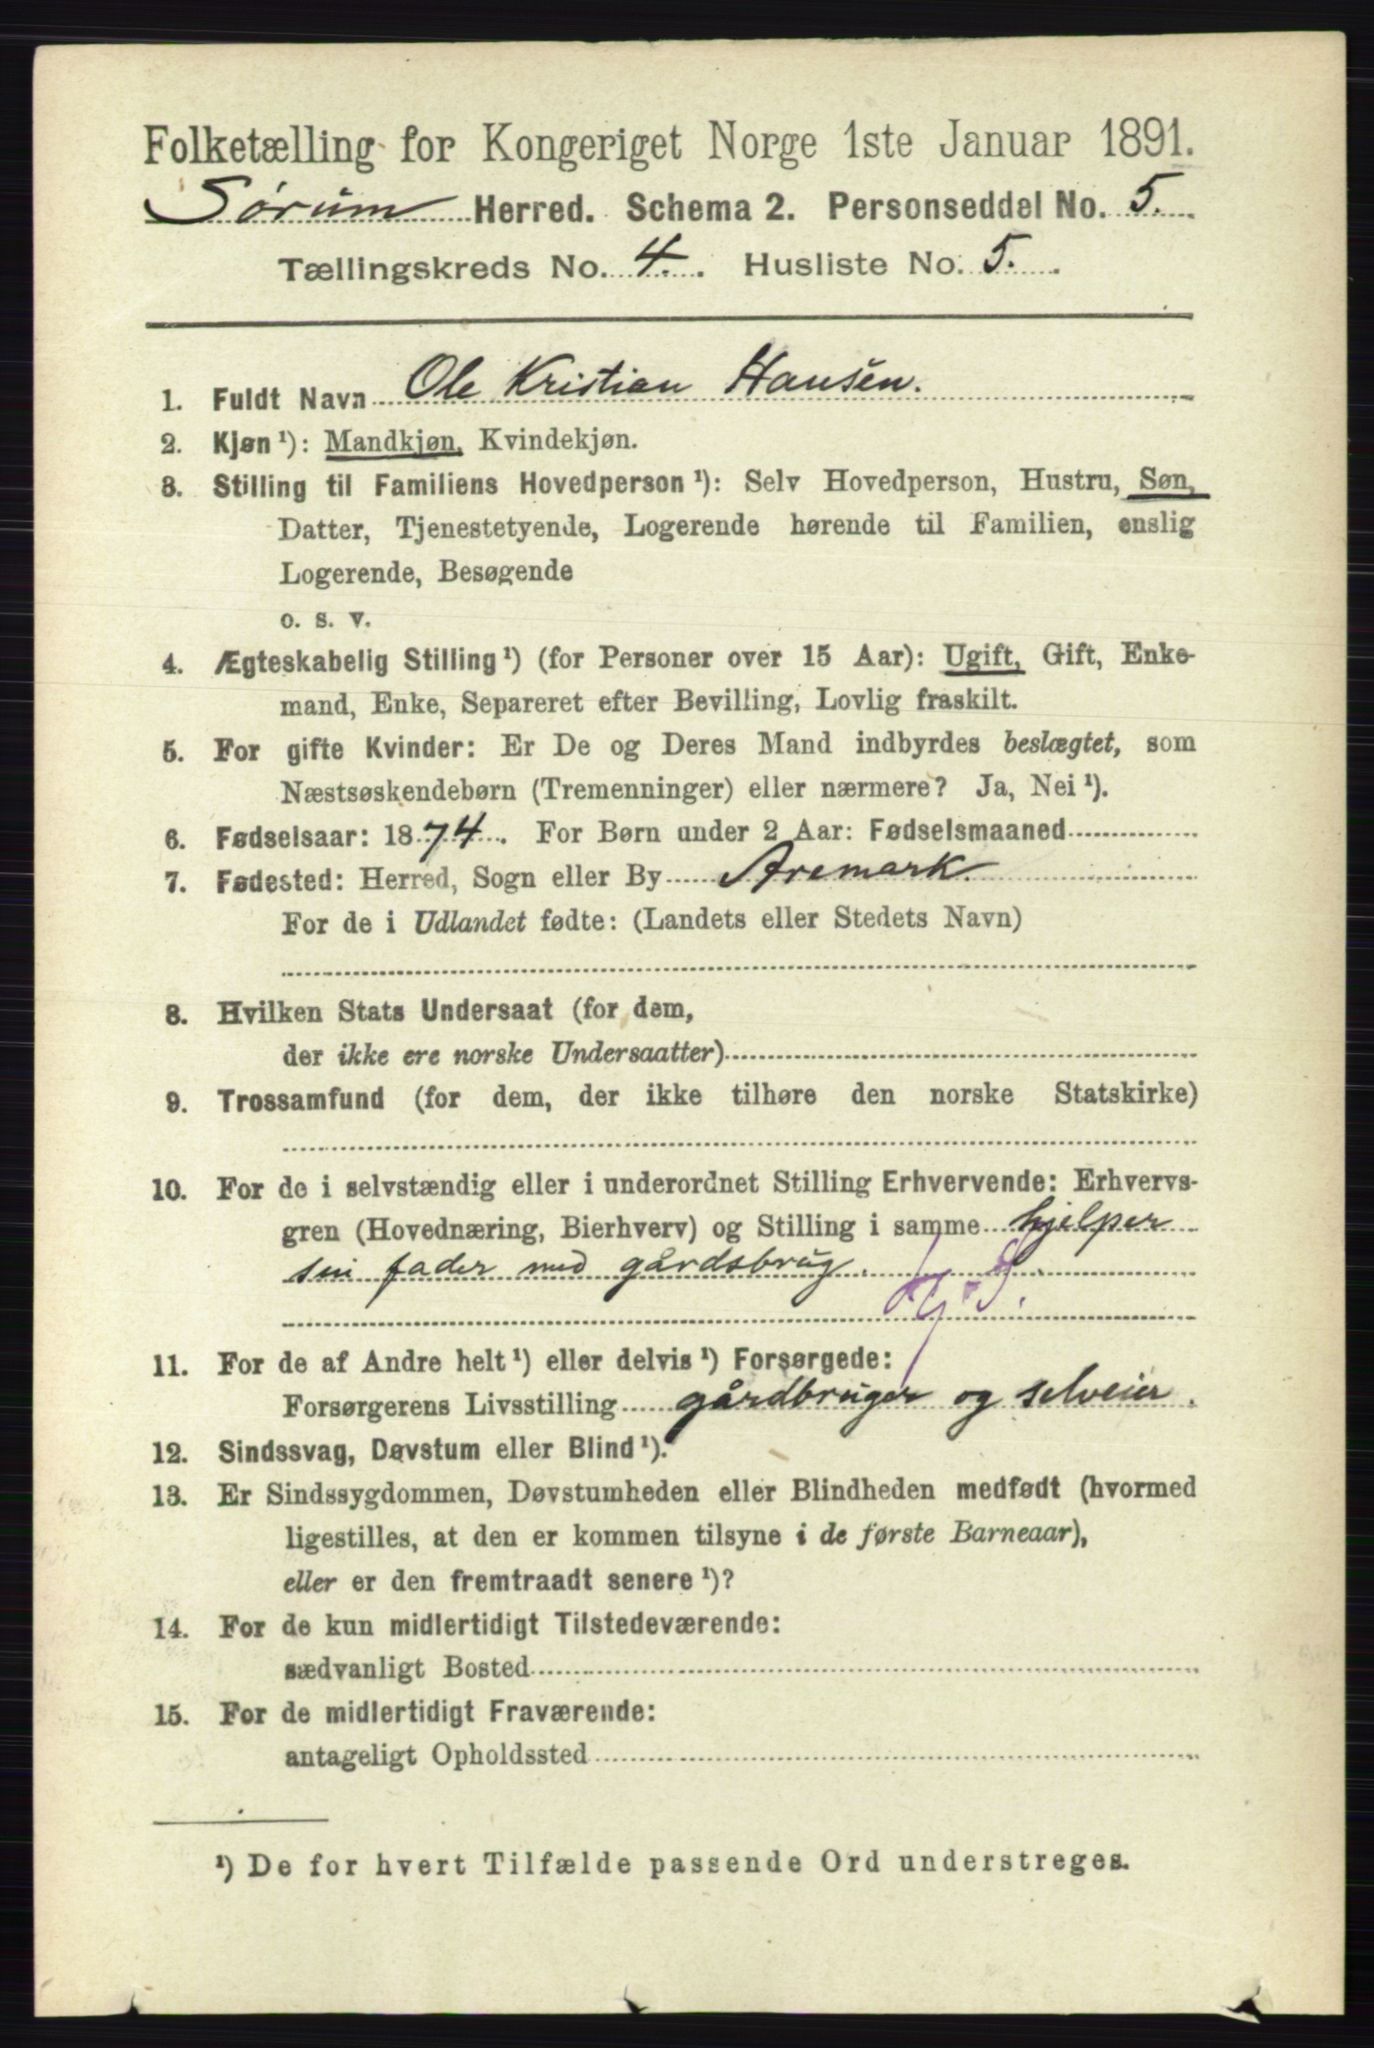 Folketælling for Kongeriget Norge 1ste Januar 1891.
Sørum Herred. Schema 2. Personseddel No. 5.
Tællingskreds No. 4. Husliste No. 5.
1. Fuldt Navn Ole Kristian Hansen.
2. Kjøn¹): Mandkjøn, Kvindekjøn.
3. Stilling til Familiens Hovedperson¹): Selv Hovedperson, Hustru, Søn,
Datter, Tjenestetyende, Logerende hørende til Familien, enslig
Logerende, Besøgende
o. s. v.
4. Ægteskabelig Stilling¹) (for Personer over 15 Aar): Ugift, Gift, Enke-
mand, Enke, Separeret efter Bevilling, Lovlig fraskilt.
5. For gifte Kvinder: Er De og Deres Mand indbyrdes beslægtet, som
Næstsøskendebørn (Tremenninger) eller nærmere? Ja, Nei¹).
6. Fødselsaar: 1874. For Børn under 2 Aar: Fødselsmaaned
7. Fødested: Herred, Sogn eller By Aremark.
For de i Udlandet fødte: (Landets eller Stedets Navn)
8. Hvilken Stats Undersaat (for dem,
der ikke ere norske Undersaatter)
9. Trossamfund (for dem, der ikke tilhøre den norske Statskirke)
10. For de i selvstændig eller i underordnet Stilling Erhvervende: Erhvervs-
gren (Hovednæring, Bierhverv) og Stilling i samme hjelper
sin fader med gårdsbrug.
11. For de af Andre helt¹) eller delvis¹) Forsørgede:
Forsørgerens Livsstilling gårdbruger og selveier.
12. Sindssvag, Døvstum eller Blind¹).
13. Er Sindssygdommen, Døvstumheden eller Blindheden medfødt (hvormed
ligestilles, at den er kommen tilsyne i de første Barneaar),
eller er den fremtraadt senere¹)?
14. For de kun midlertidigt Tilstedeværende:
sædvanligt Bosted
15. For de midlertidigt Fraværende:
antageligt Opholdssted
¹) De for hvert Tilfælde passende Ord understreges.